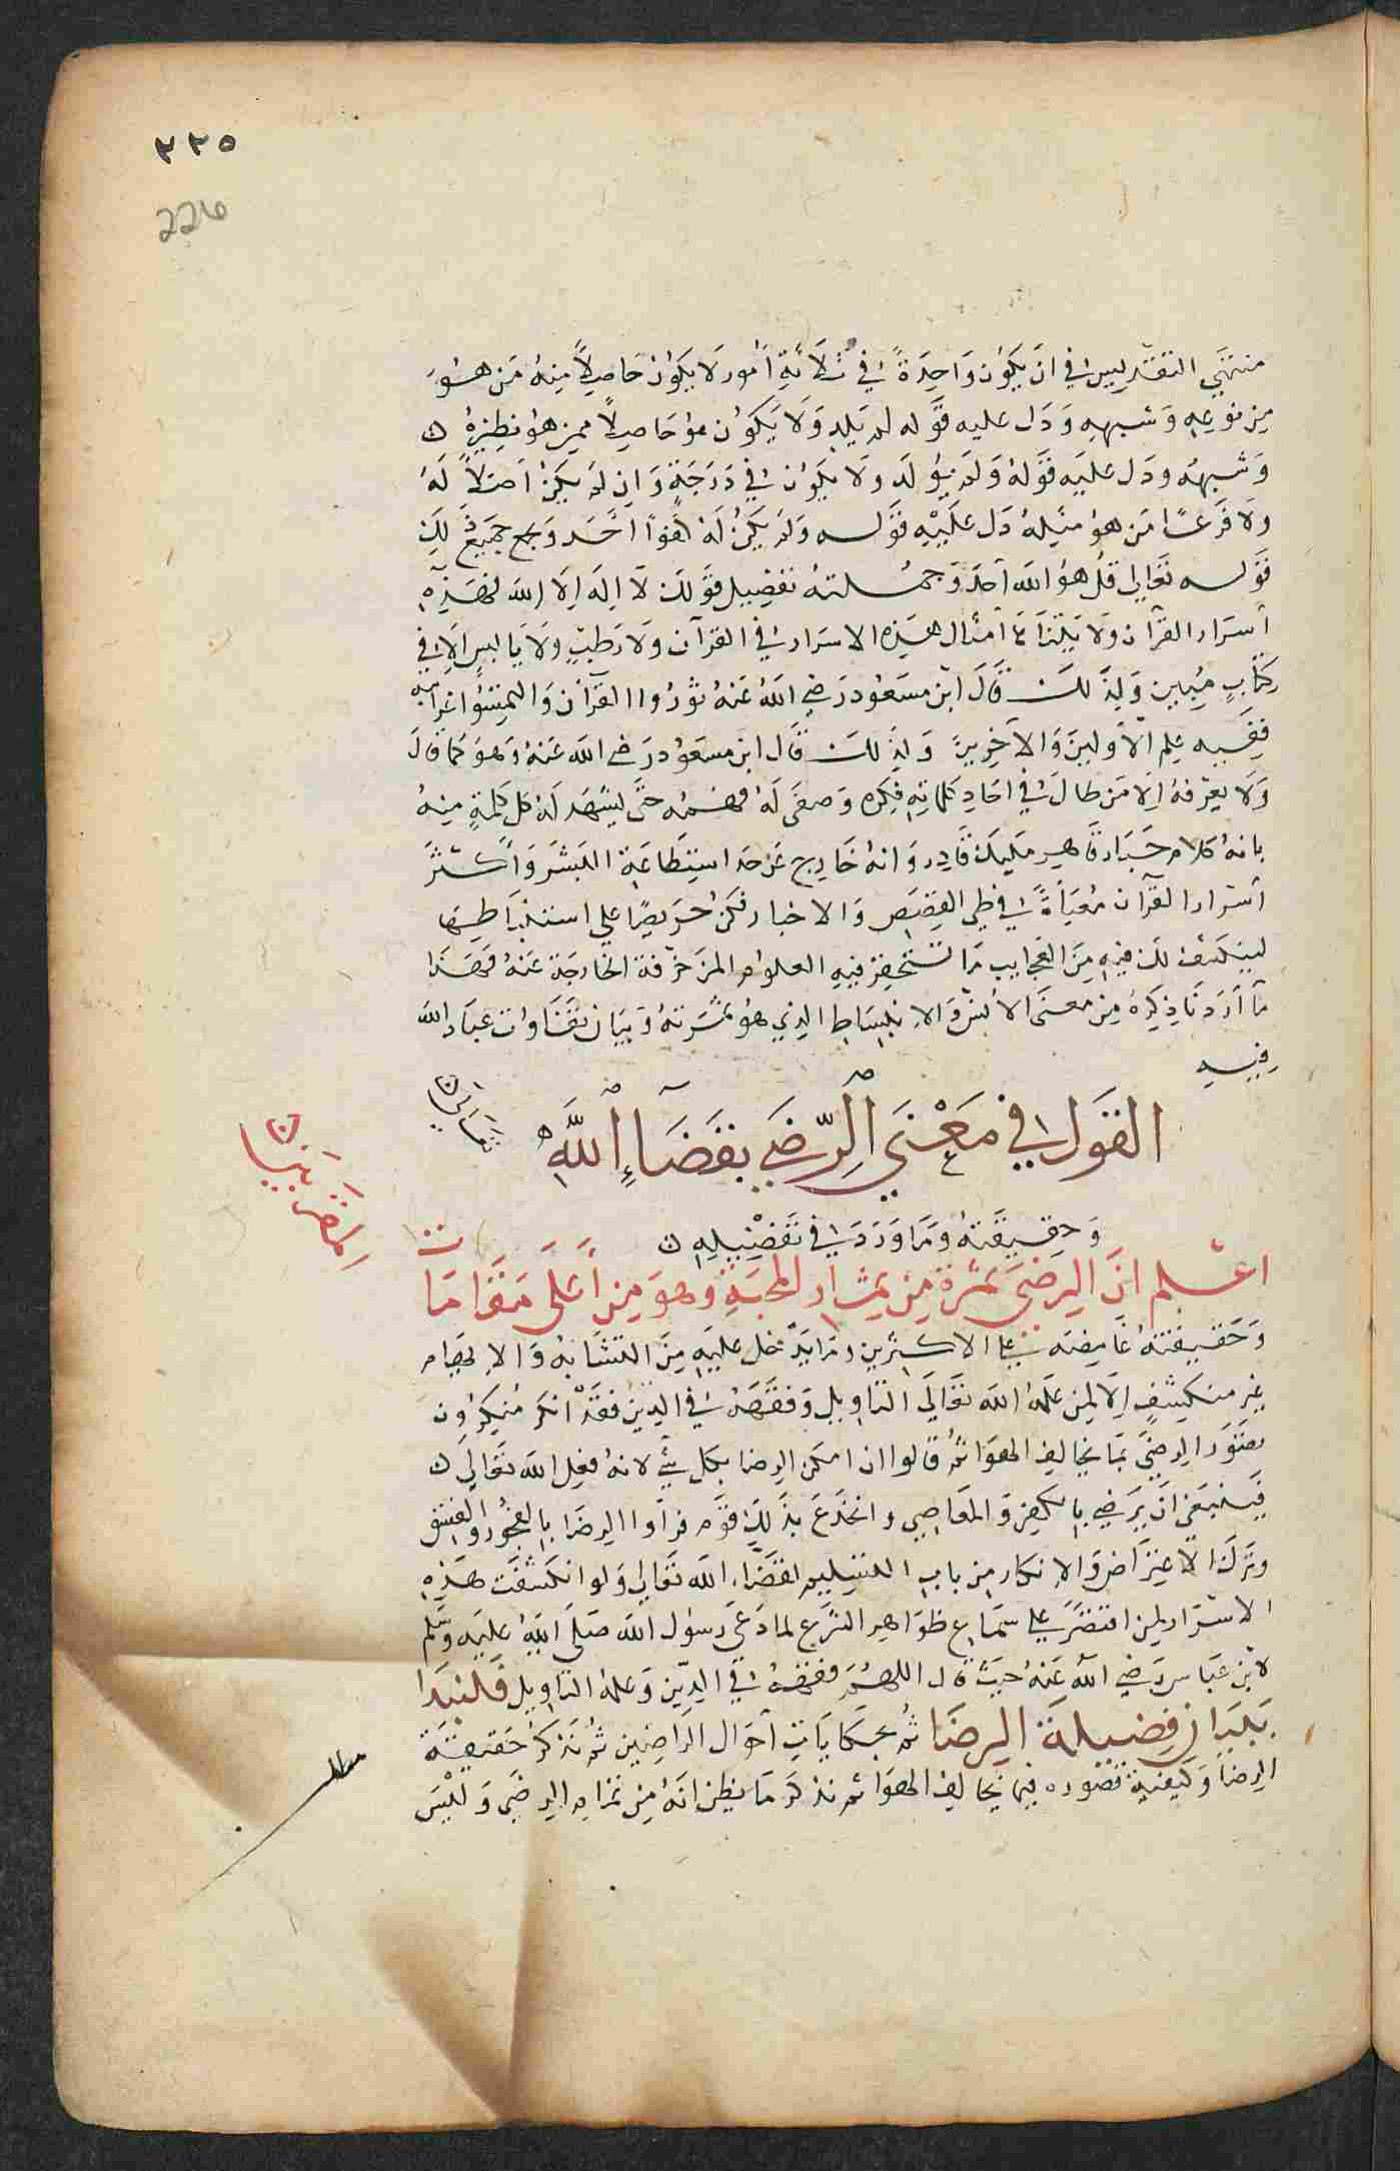 ٢٢٥
226
منتهى التقديس في ان يكون واحدة في ثلاثة أمور لا يكون حاصلاً منه من هو
من نوعه وشبهه ودل عليه قوله لم يلد ولا يكون هو حاصلاً ممن هو نظيره
وشبهه ودل عليه قوله ولم يولد ولا يكون في درجة وان لم يكن اصلاً له
ولا فرعًا من هو مثله دل عليه قوله ولم يكن له كفوًا احد ويجمع جميع ذلك
قوله تعالى قل هو الله احد وجملته تفضيل قولك لا اله الا الله فهذه
أسرار القرآن ولا يتناهى أمثال هذه الاسرار في القرآن ولا رطب ولا يابس الا في
كتاب مبين ولذلك قال ابن مسعود رضي الله عنه ثوروا القرآن والتمسوا غرائبه
ففيه علم الأولين والآخرين ولذلك قال ابن مسعود رضي الله عنه وهو كما قال
ولا يعرفه الا من طال في احاد كلماته فكره وصفى له فهمه حتى يشهد له كل كلمة منه
بانه كلام جبار قاهر مليك قادر وانه خارج عن حد استطاعة البشر وأكثر
أسرار القرآن معبأة في طي القصص والاخبار فكن حريصًا على استنباطها
لينكشف لك فيه من العجايب ما تستحقر فيه العلوم المزخرفة الخارجة عنه فهذا
ما أردنا ذكره من معنى الأنس والانبساط الذي هو ثمرته وبيان تفاوت عباد الله
فيه
القول في معنى الرضى بقضاء الله
تعالى
وحقيقته وما ورد في تفضيله
اعلم ان الرضى ثمرة من ثمار المحبة وهو من أعلى مقامات
وحقيقته غامضة على الاكثرين وما يدخل عليه من التشابه والابهام
غير منكشف الا لمن علمه الله تعالى التاويل وفقهه في الدين فقد انكر منكرون
تصور الرضى بما يخالف الهوا ثم قالوا ان امكن الرضا بكل شيء لانه فعل الله تعالى
فينبغي ان يرضى بالكفر والمعاصي وانخدع بذلك قوم فرأوا الرضا بالفجور والفسق
وترك الاعتراض والانكار من باب التسليم لقضاء الله تعالى ولو انكشفت هذه
الاسرار لمن اقتصر على سماع ظواهر الشرع لما دعى رسول الله صلى الله عليه وسلم
لابن عباس رضي الله عنه حيث قال اللهم فقهه في الدين وعلمه التاويل فلنبدا
ببيان فضيلة الرضا ثم بحكايات أحوال الراضين ثم نذكر حقيقة
الرضا وكيفية تصوره فيما يخالف الهوا ثم نذكر ما يظن انه من تمام الرضى وليس
مطلب